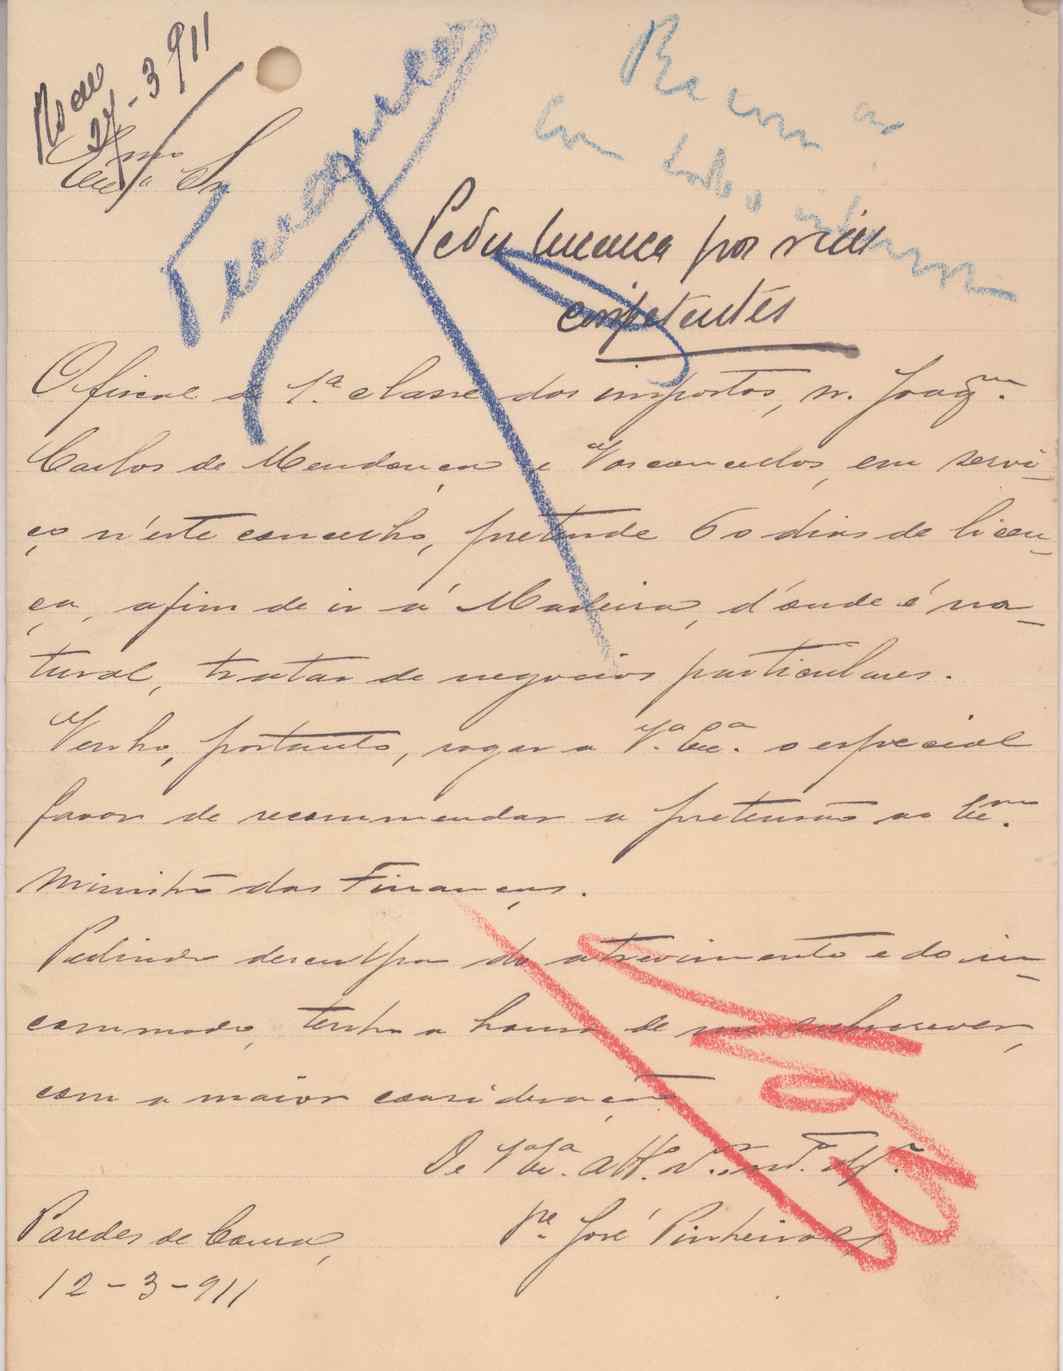 27-3-911
Exmo Sr
Pedir licença por vias
competentes
O fiscal de 1.ª classe dos impostos, sr. Joaqm.
Carlos de Mendonça e Vasconcellos, em servi-
ço n'este concelho, pretende 60 dias de licen-
ça, afim de ir á Madeira, d'onde é na-
tural, tratar de negocios particulares.
Venho, portanto, rogar a V.ª Ex.ª o especial
favor de recommendar a pretensão ao Exmo.
Ministro das Finanças.
Pedindo desculpa do atrevimento e do in-
commodo, tenho a honra de me subscrever,
com a maior consideração
De V.ª Ex.ª Att.º
Paredes de Coura,
Pe. José Pinheiro
12-3-911